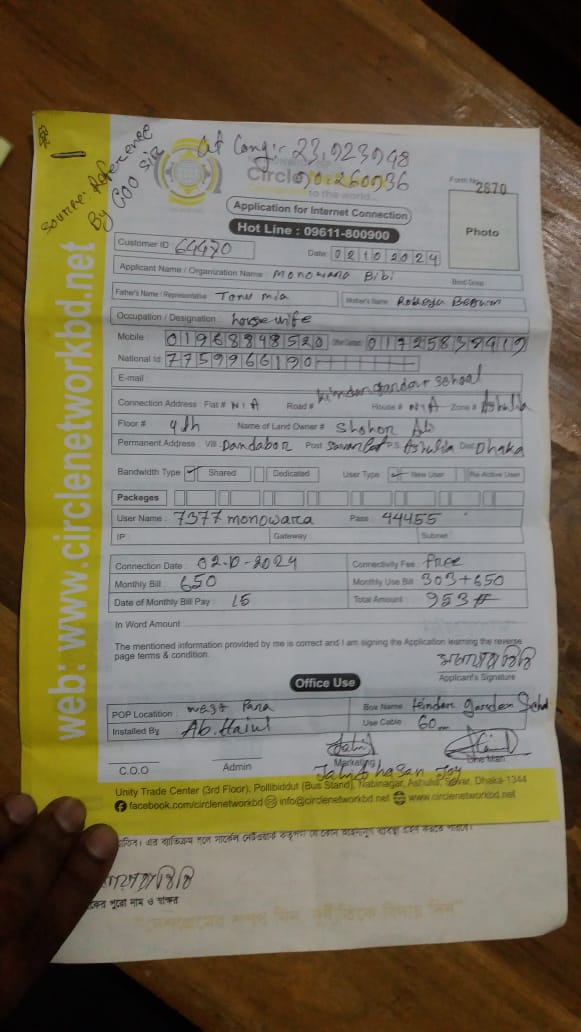 Source: Reference
By COO Sir
Lat Long:- 23.923948
90.260936
Circle
to the world...
Form No 2870
Application for Internet Connection
Hot Line : 09611-800900
Photo
Customer ID : 64470
Date: 02102024
Applicant Name / Organization Name : Monowara Bibi
Blood Group :
Father's Name / Representative : Tonu mia
Mother's Name : Begum
Occupation / Designation : house wife
Mobile : 01968848520 Other Contact :
National Id : 7759966190
E-mail :
kinder garden school
Connection Address : Flat # N/A Road # House # N/A Zone # Ashulia
Floor # 4th Name of Land Owner # Shohor Ali
Permanent Address : Vill Dandabor Post P.S. Ashulia Dist Dhaka
Bandwidth Type Shared Dedicated User Type New User Re-Active User
Packeges
User Name : 7377monowara Pass : 44455
IP : Gateway : Subnet :
Connection Date : 02-10-2024 Connectivity Fee : Free
Monthly Bill : 650 Monthly Use Bill : 303+650
Date of Monthly Bill Pay : 15 Total Amount : 953
In Word Amount :
The mentioned information provided by me is correct and I am signing the Application learning the reverse
page terms & condition.
Applicant's Signature
Office Use
POP Locatition : west Para Box Name : kinder garden
Installed By : Use Cable : 60m
C.O.O Admin Marketing Line Man
Jahid hasan Joy
Unity Trade Center (3rd Floor), Pollibiddut (Bus Stand), Nabinagar, Ashulia, Savar, Dhaka-1344
facebook.com/circlenetworkbd info@circlenetworkbd.net www.circlenetworkbd.net
web: www.circlenetworkbd.net
পুরো নাম ও স্বাক্ষর